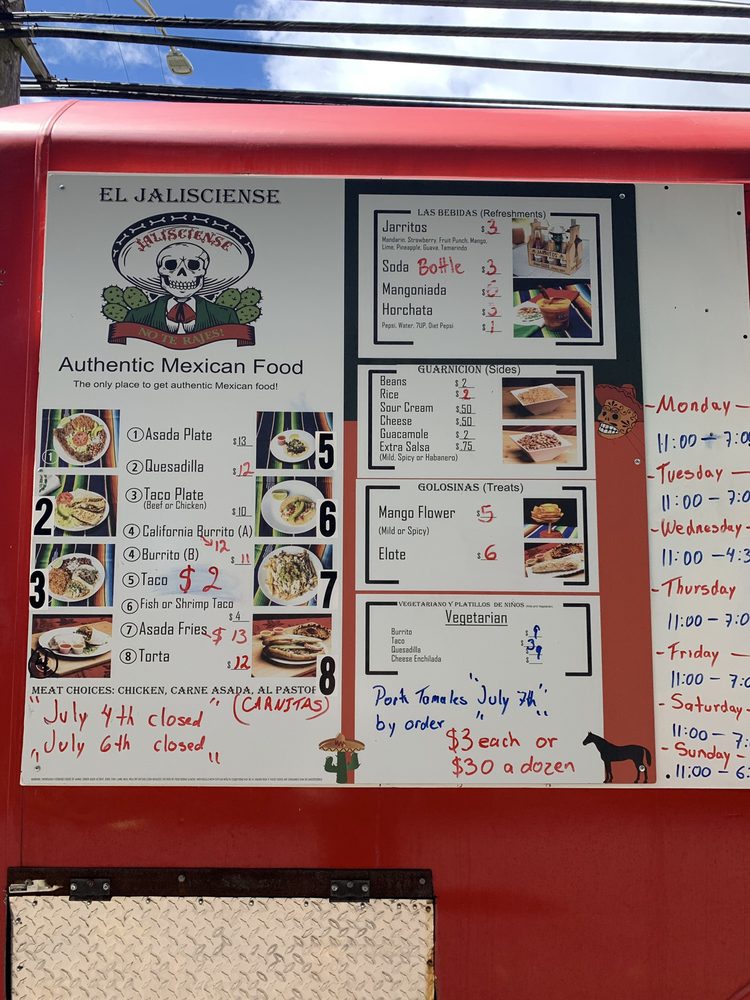 EL JALISCIENSE
JALISCIENSE
NO TE RAJES!
Authentic Mexican Food
The only place to get authentic Mexican food!
① Asada Plate $13
② Quesadilla $12
③ Taco Plate
(Beef or Chicken) $10
④ California Burrito (A)
$12
④ Burrito (B) $11
⑤ Taco $2
⑥ Fish or Shrimp Taco
$4
⑦ Asada Fries $13
⑧ Torta $12
1
2
3
4
5
6
7
8
MEAT CHOICES: CHICKEN, CARNE ASADA, AL PASTOR
(CARNITAS)
"July 4th closed"
"July 6th closed"
LAS BEBIDAS (Refreshments)
Jarritos $3
Mandarin, Strawberry, Fruit Punch, Mango,
Lime, Pineapple, Guava, Tamarindo
Soda Bottle $3
Mangoniada $
Horchata $3
Pepsi, Water, 7UP, Diet Pepsi $1
GUARNICION (Sides)
Beans $2
Rice $2
Sour Cream $.50
Cheese $.50
Guacamole $2
Extra Salsa $.75
(Mild, Spicy or Habanero)
GOLOSINAS (Treats)
Mango Flower $5
(Mild or Spicy)
Elote $6
VEGETARIANO Y PLATILLOS DE NIÑOS
Vegetarian
Burrito $9
Taco $3
Quesadilla $9
Cheese Enchilada $
Pork Tamales "July 7th"
by order
$3 each or
$30 a dozen
-Monday-
11:00 - 7:0
-Tuesday-
11:00 - 7:0
-Wednesday-
11:00 - 4:3
-Thursday
11:00 - 7:0
-Friday-
11:00 - 7:0
-Saturday-
11:00 - 7:
-Sunday-
11:00 - 6: